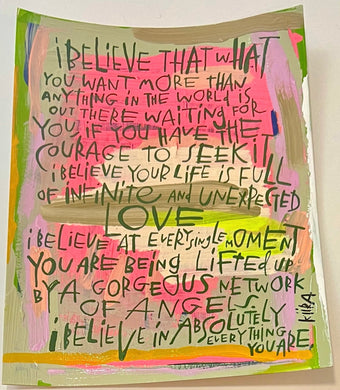 i BELiEVE THAT WHAT
YOU WANT MORE THAN
ANYTHING IN THE WORLD IS
OUT THERE WAITING FOR
YOU iF YOU HAVE THE
COURAGE TO SEEK iT
i BELIEVE YOUR LiFE iS FULL
OF iNFiNite AND UNEXPECTED
LOVE
i BELiEVE AT EVERY SINGLE MOMENT
YOU ARE BEING LiFTED UP
BY A GORGEOUS NETWORK
OF ANGELS
i BELIEVE iN ABSOLUTELY
EVERYTHING
YOU ARE.